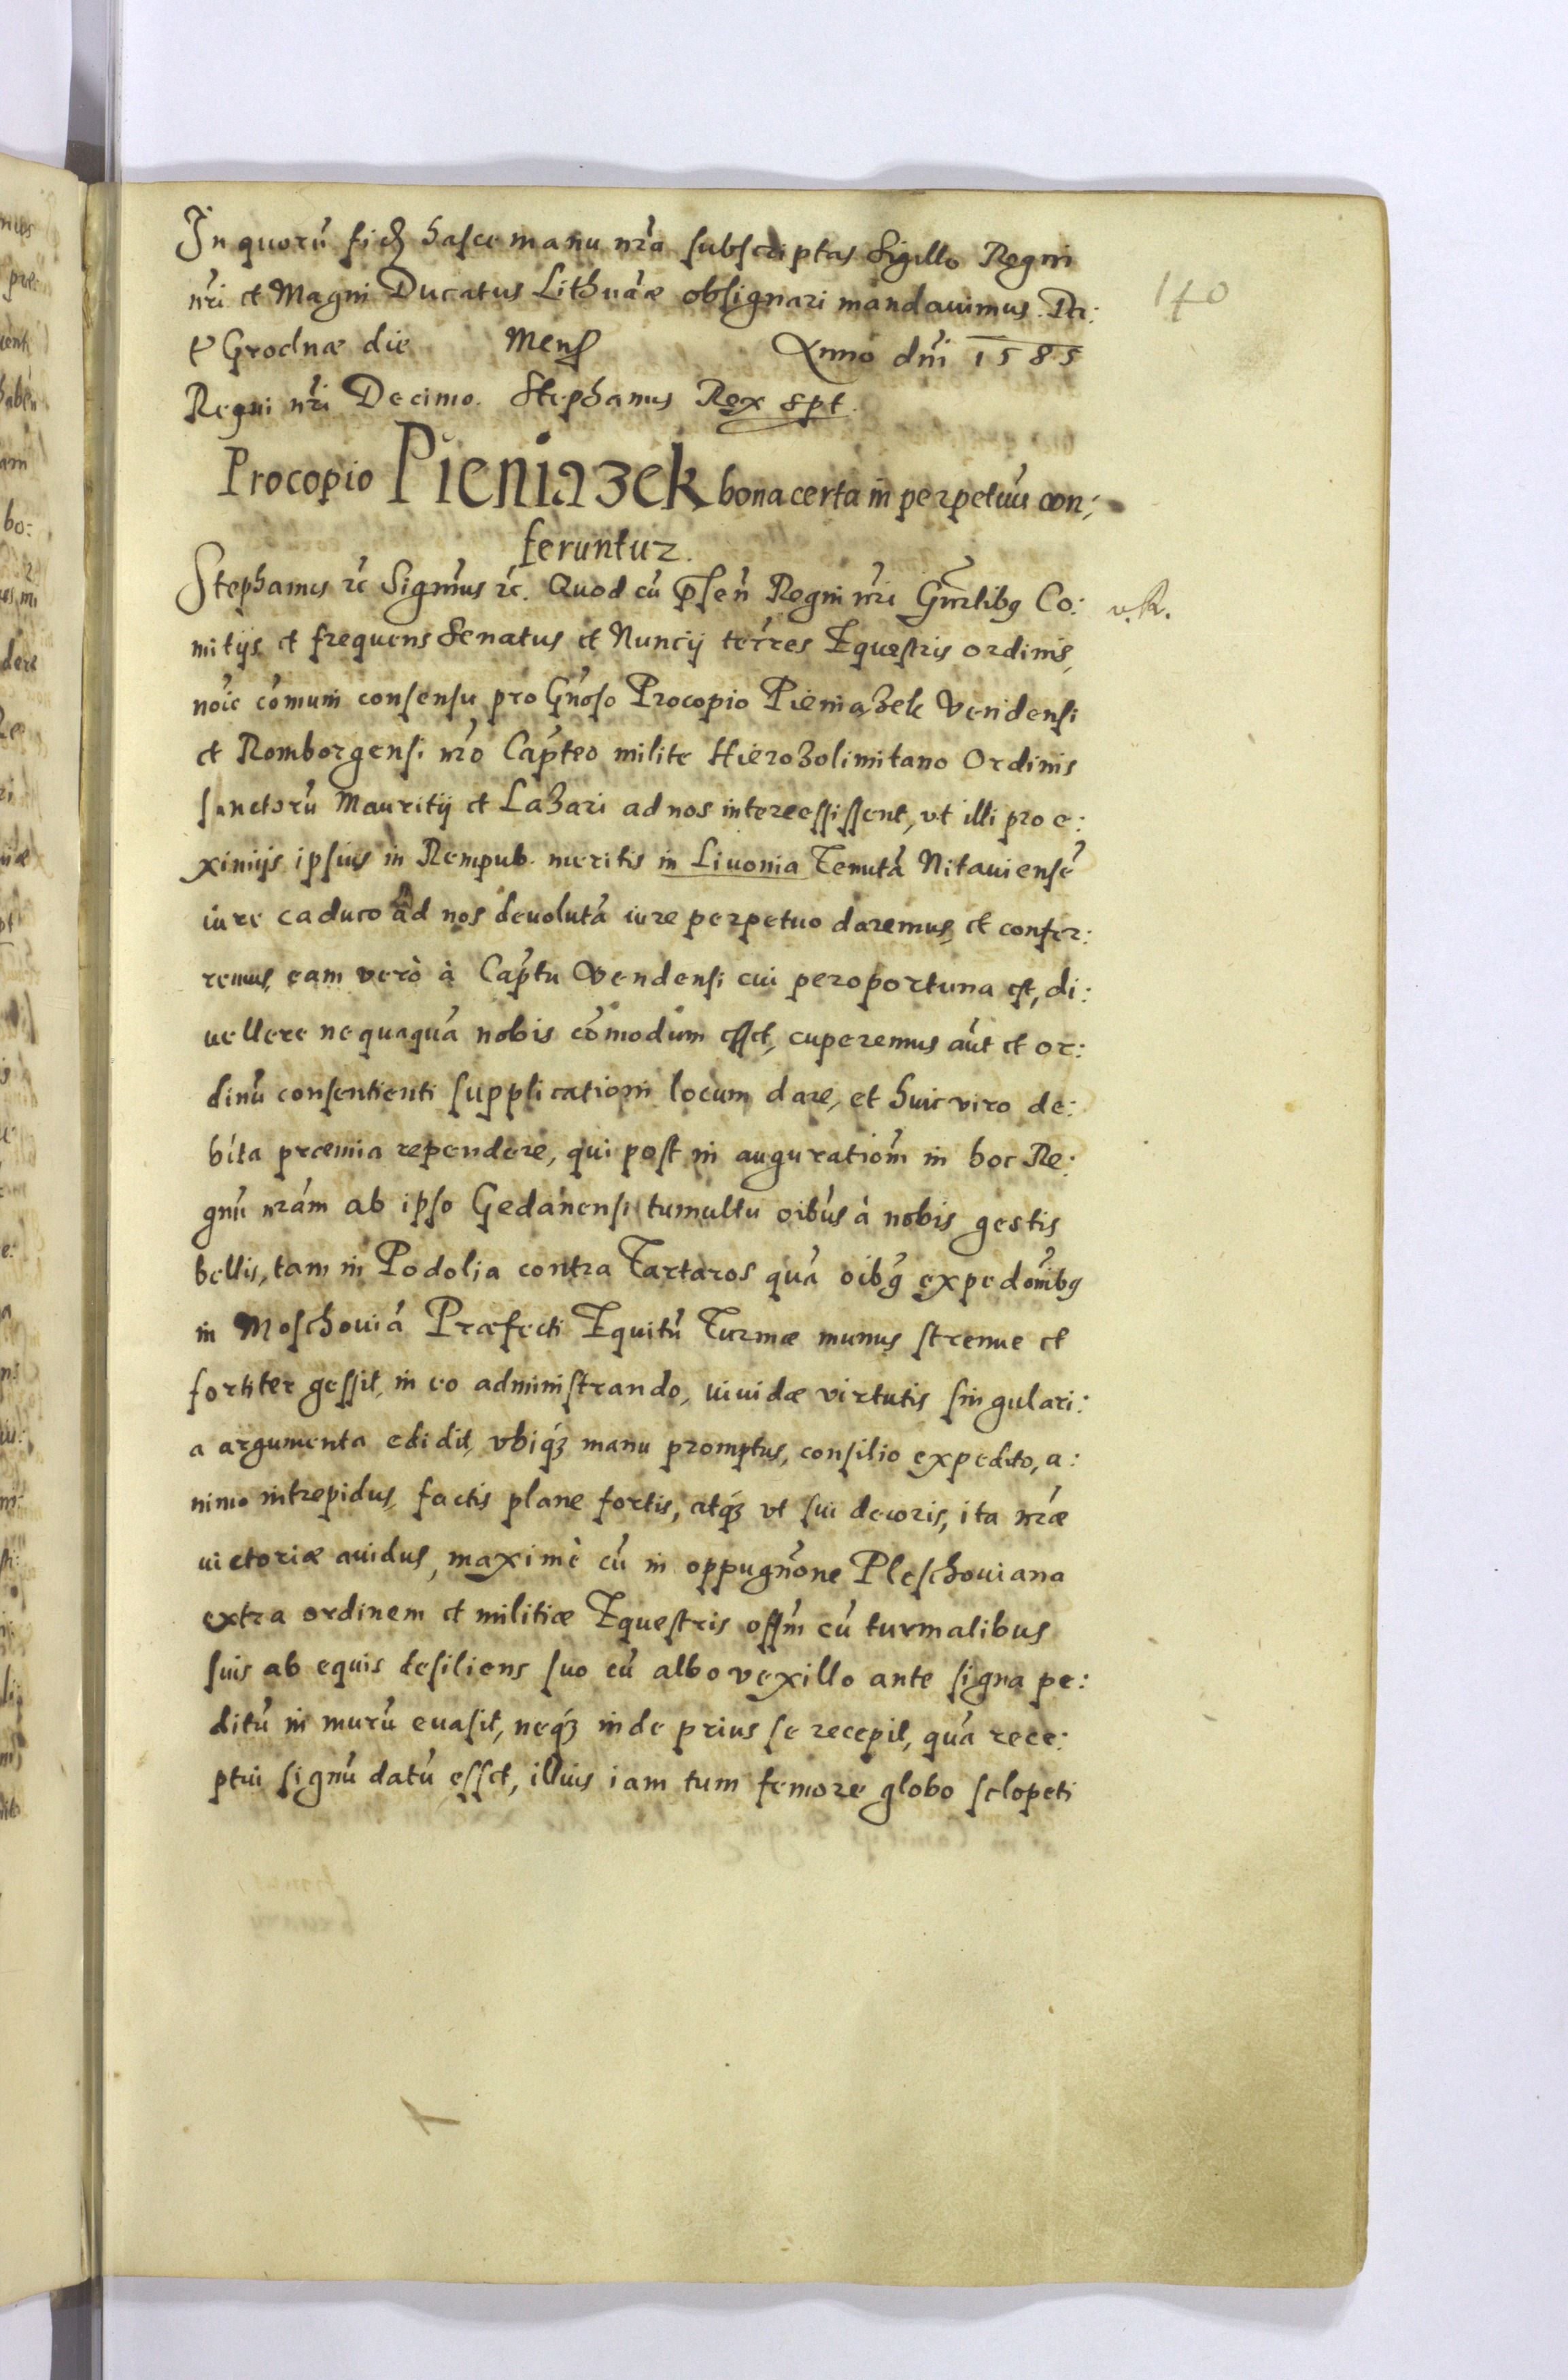 In quorũ fidẽ hasce manu nr̃a subscriptas Sigillo Regni
nr̃i et Magni Ducatus Lithuãæ obsignari mandavimus. Da:
t̃ Grodnæ die Mens̃ Anno dñi 1585
Regni nr̃i Decimo. Stephanus Rex spt.
140
Procopio Pieniazek bona certa in perpetuũ con:
feruntur.
Stephanus etc̃ Sigm̃us etc̃. Quod cũ p̃sen̄ Regni nr̃i Gñrlibq Co:
mitijs et frequens Senatus et Nuncij ter̃res Equestris ordinis,
nõie cõmuni consensu pro Gñoso Procopio Pieniazek Vendensi
et Romborgensi nr̃o Cap̃teo milite Hierozolimitano Ordinis
sanctorũ Mauritij et Lazari ad nos intercessissent, vt illi pro e:
ximijs ipsius in Rempub. meritis in Livonia Tenutã Nitauiensẽ
iure caduco ad nos devolutã iure perpetuo daremus, et confer:
remus, eam verò à Cap̃tu Vendensi cui peroportuna est, di:
uellere nequaquã nobis cõmodum esset, cuperemus aũt et or:
dinũ consentienti supplicationi locum dare, et huic viro de:
bita præmia rependere, qui post in auguratiom̃ in hoc Re:
gnũ nrãm ab ipso Gedanensi tumultu oib̃us à nobis gestis
bellis, tam in Podolia contra Tartaros quã oibq̃ expedom̃bq
in Moschouiã Præfecti Equitũ Turmæ munus strenue et
fortiter gessit, in eo administrando, uiuidæ virtutis singulari:
a argumenta edidit, vbiq́ȝ manu promptus, consilio expedito, a:
nimo intrepidus, factis plane fortis, atq́ȝ vt sui decoris, ita nr̃æ
uictoriæ auidus, maximè cũ in oppugñone Pleschouiana
extra ordinem et militiæ Equestris offm̃ cũ turmalibus
suis ab equis desiliens suo cũ albo vexillo ante signa pe:
ditũ in murũ euasit, neq́ȝ inde prius se recepit, quã rece:
ptui signũ datũ esset, illius iam tum femore globo sclopeti